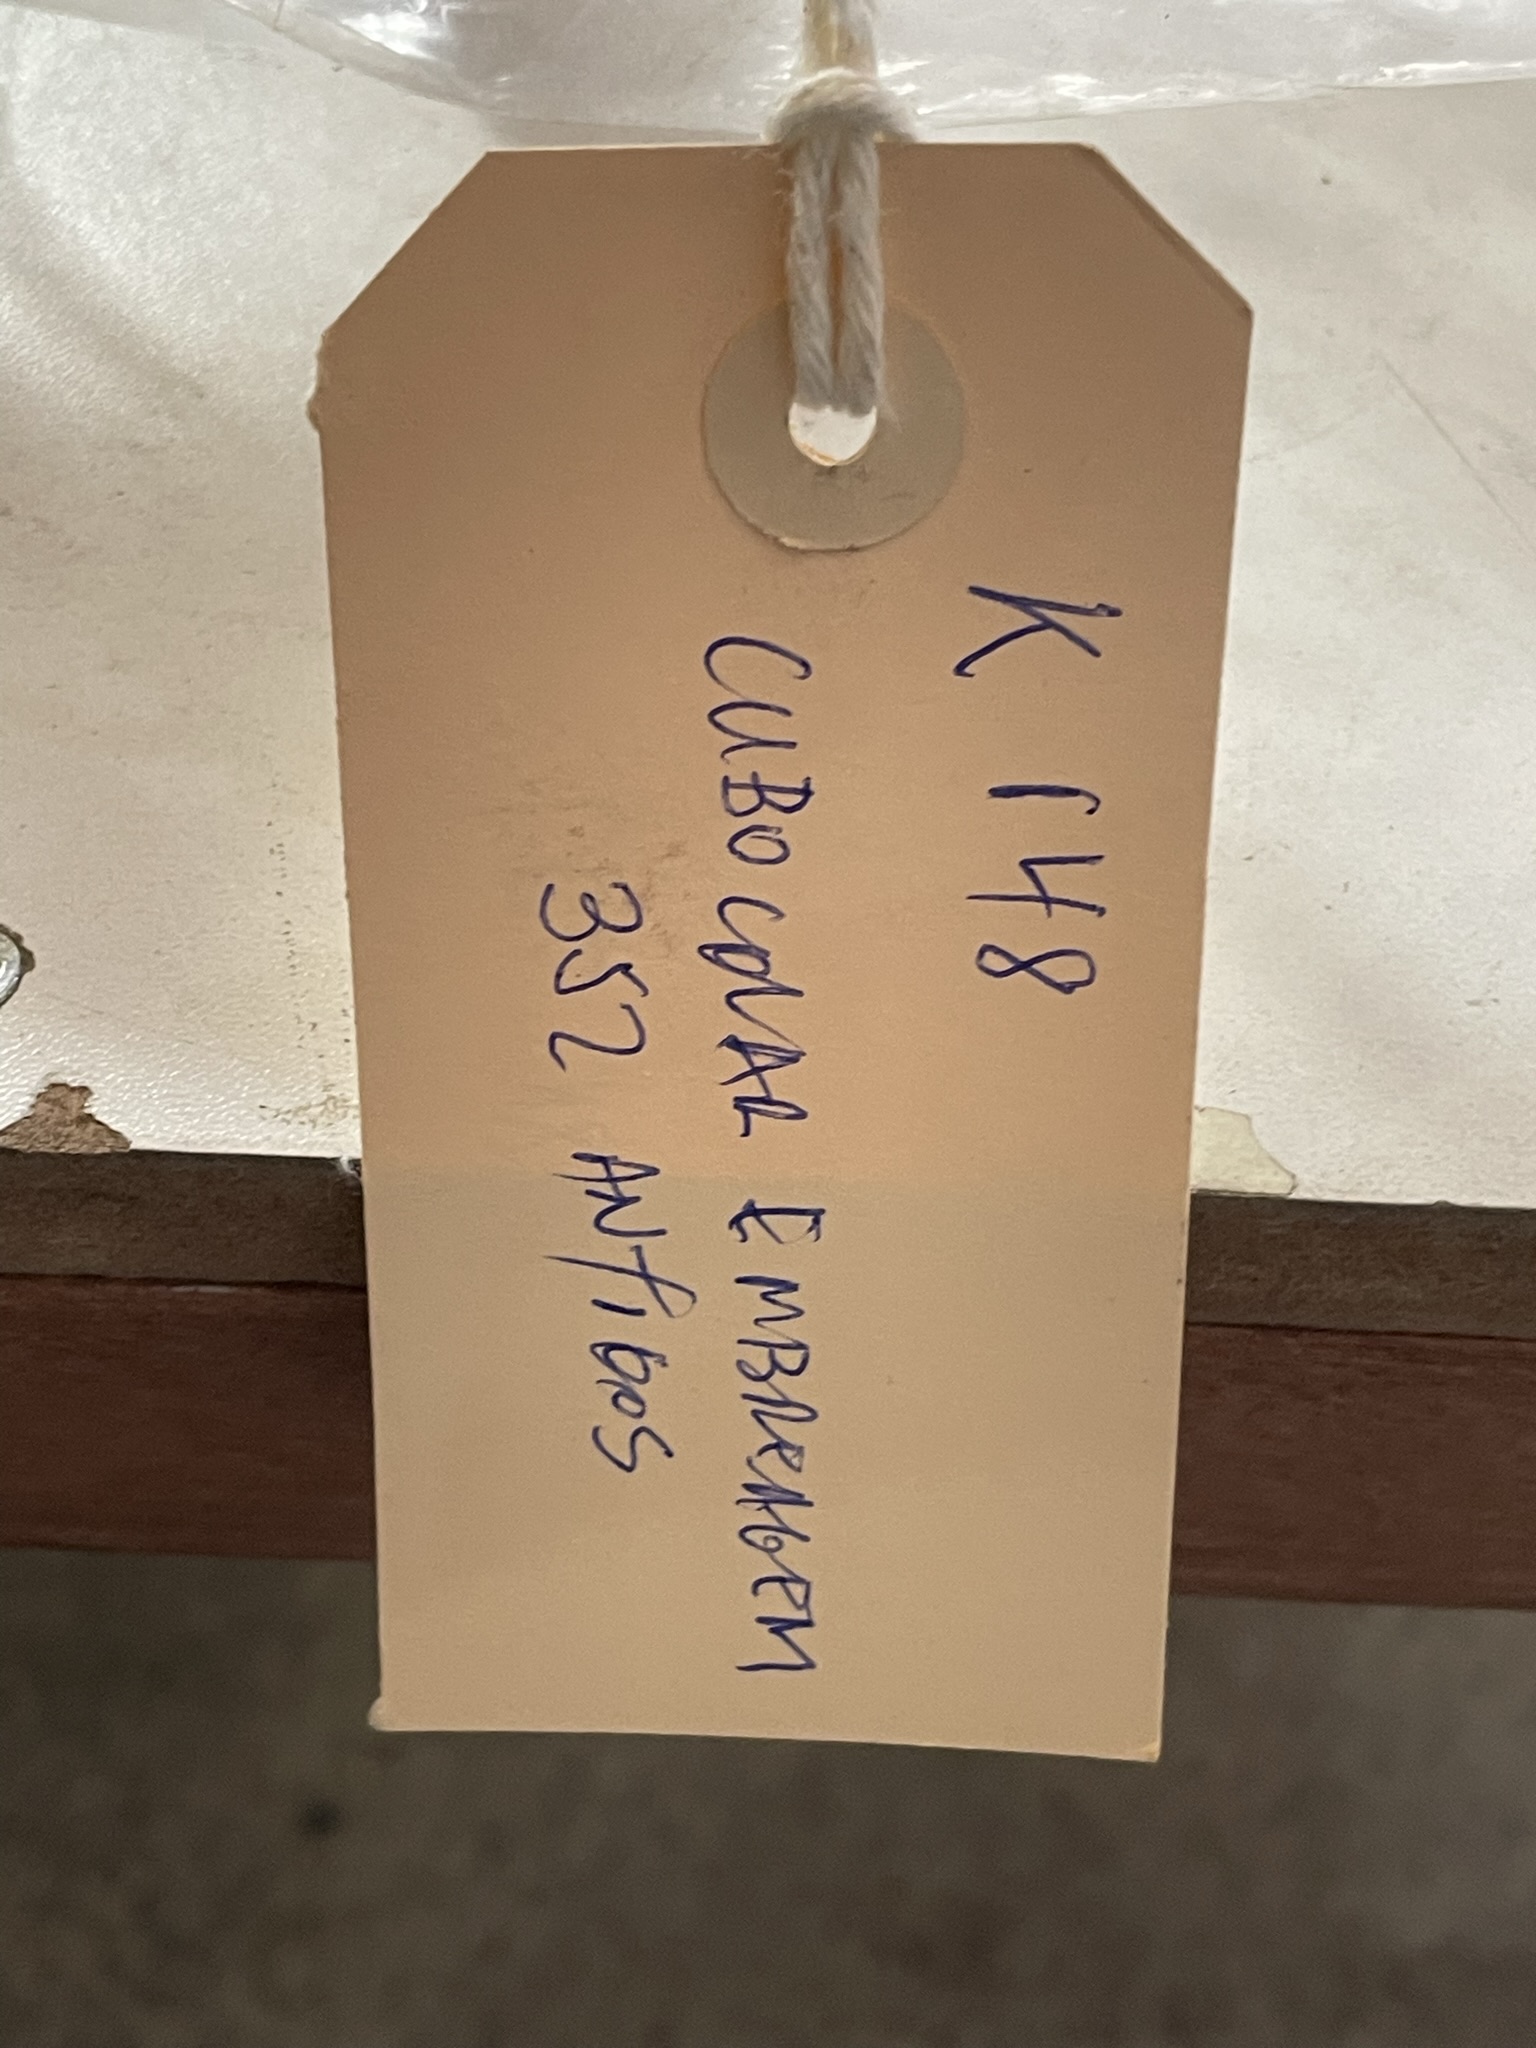 K 148
CUBO COLAR EMBREAGEM
352 ANTIGOS